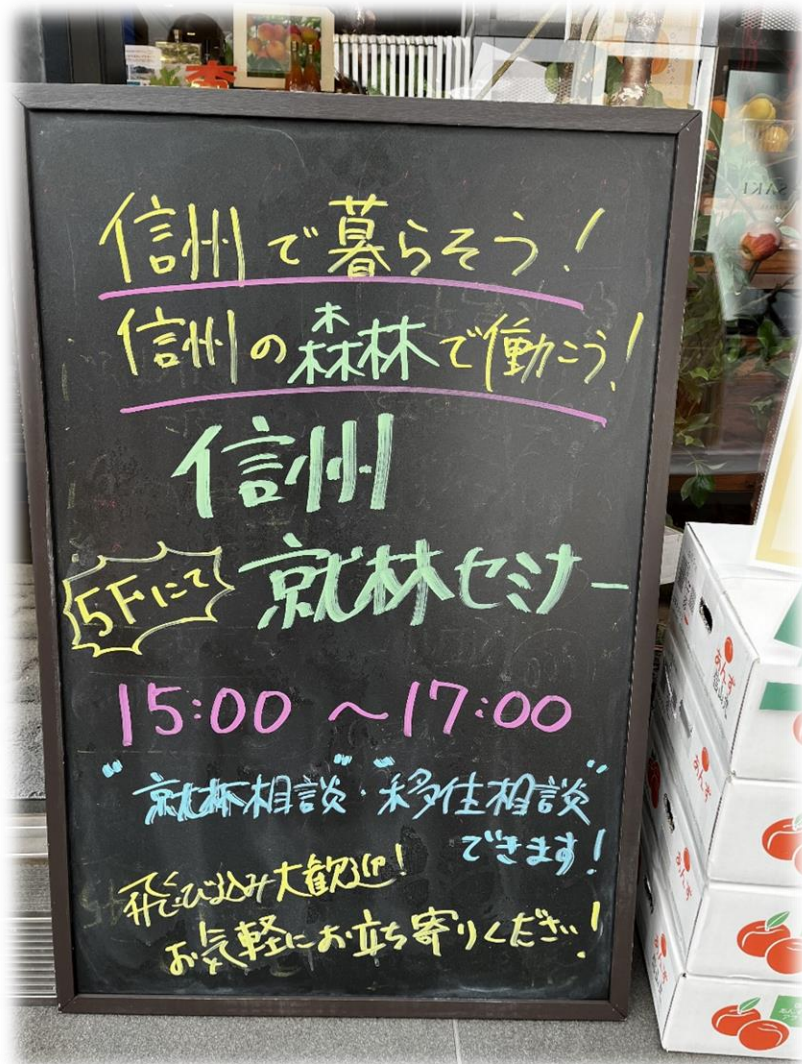 信州で暮らそう!
信州の森林で働こう!
信州
5Fにて
就林セミナー
15:00 ~17:00
"就林相談"・"移住相談"
できます!
飛び込み大歓迎!
お気軽にお立ち寄りください!
あんず
あんず